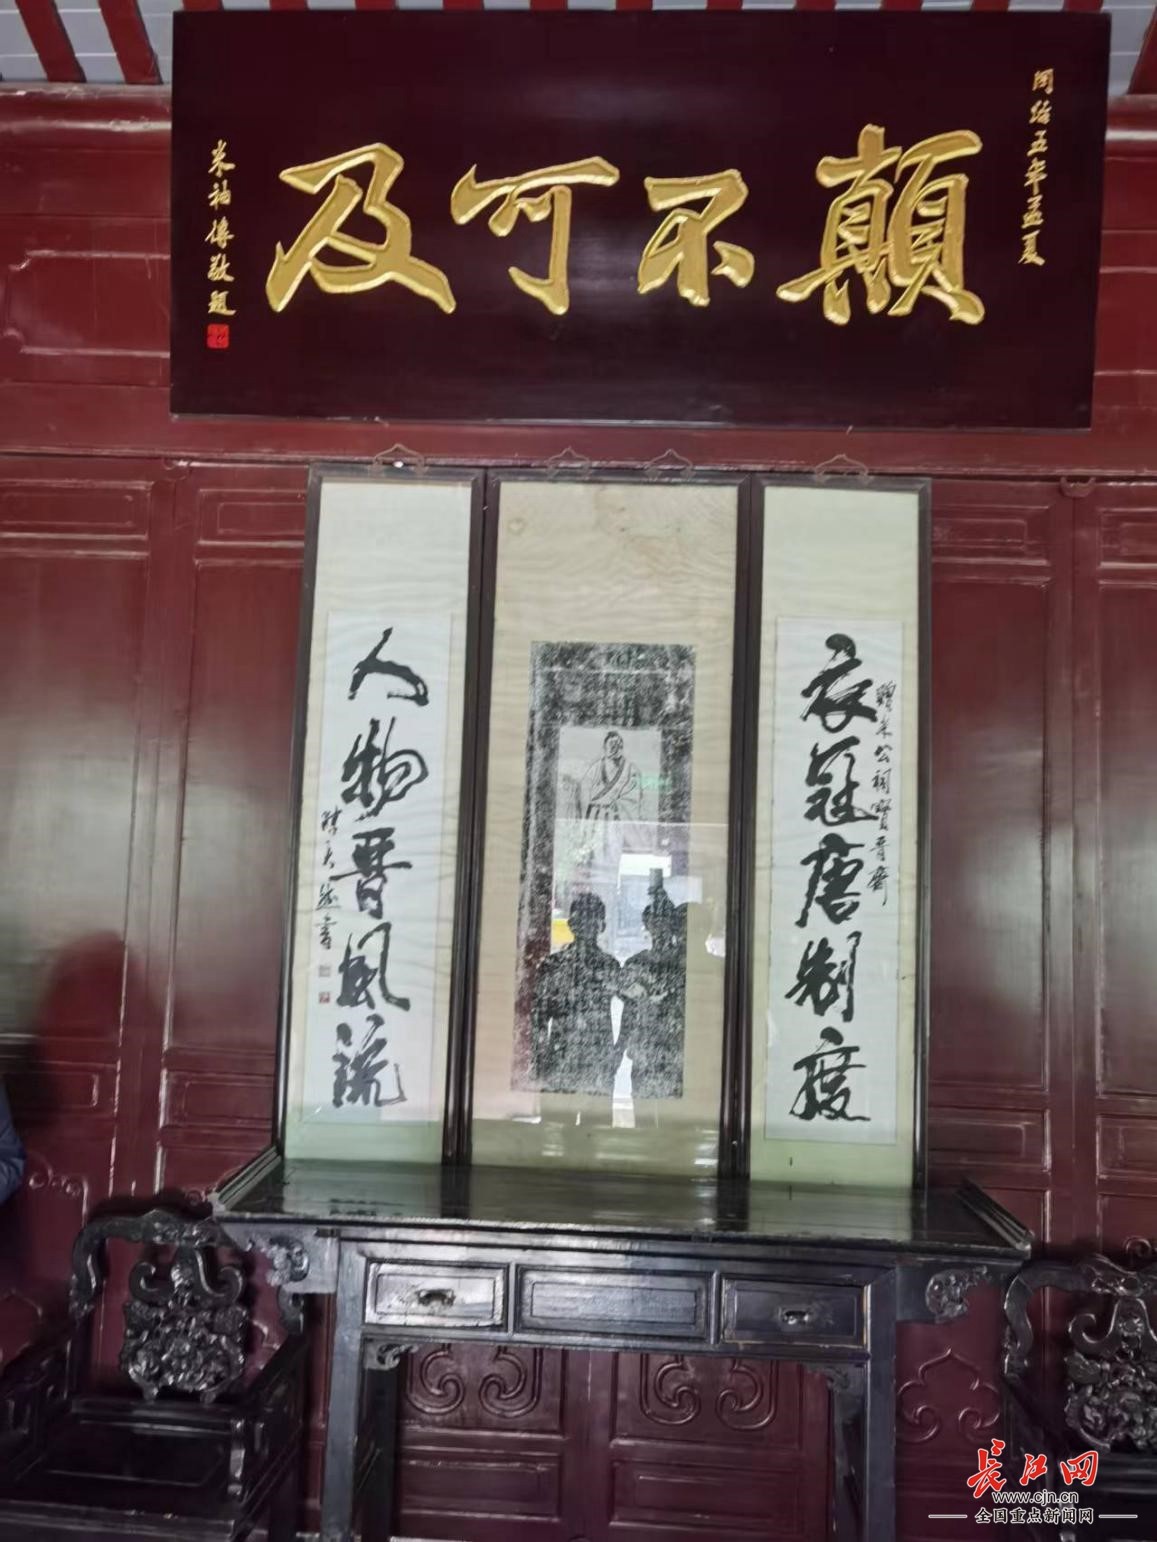 顛不可及
同治五年孟夏
米祖傳敬題
衣冠唐制度
贈米公祠寶晉齋
人物晋風流
長江网
www.cjn.cn
全国重点新闻网